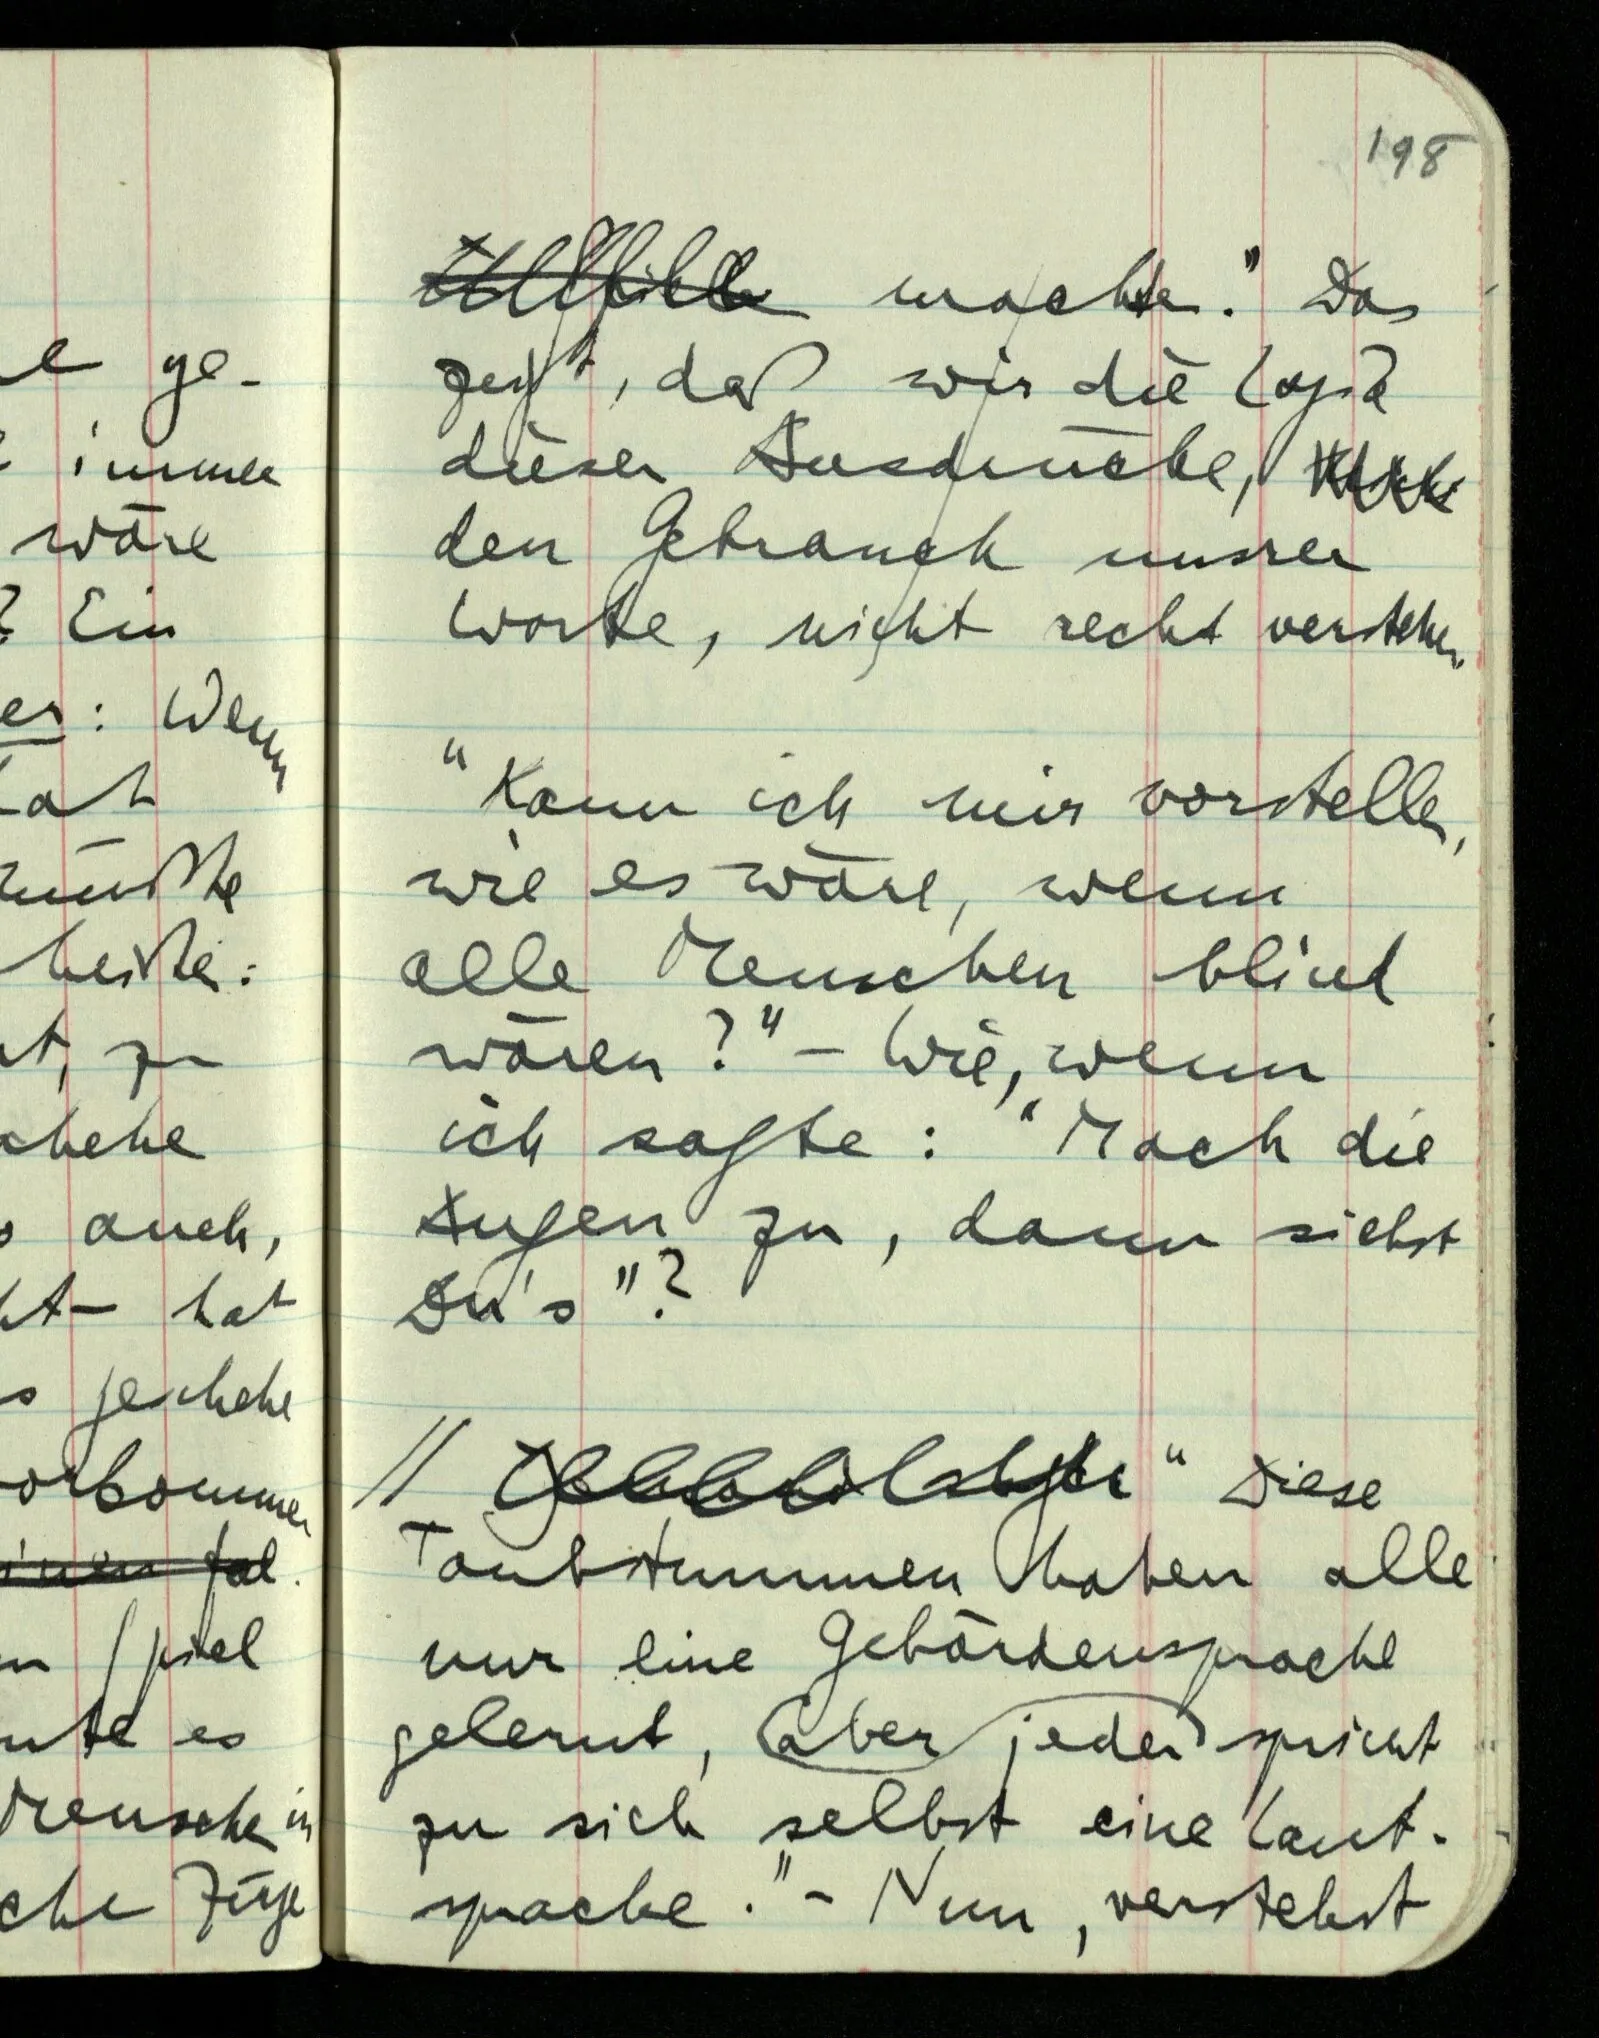 l ge-
immer
wäre
? Ein
er: Wenn
hat
müßte
heißen:
t, zu
schehe
auch,
hat
s geschehe
vorkommen
inen fal.
n Spiel
nnte es
Menschen in
che Züge
198
machte." Das
zeigt, daß wir die Logik
dieser Ausdrücke,
den Gebrauch unsrer
Worte, nicht recht verstehen.
"Kann ich mir vorstellen,
wie es wäre, wenn
alle Menschen blind
wären?" – Wie, wenn
ich sagte: "Mach die
Augen zu, dann siehst
Du's"?
// " Diese
Taubstummen haben alle
nur eine Gebärdensprache
gelernt, aber jeder spricht
zu sich selbst eine Laut-
sprache." – Nun, verstehst